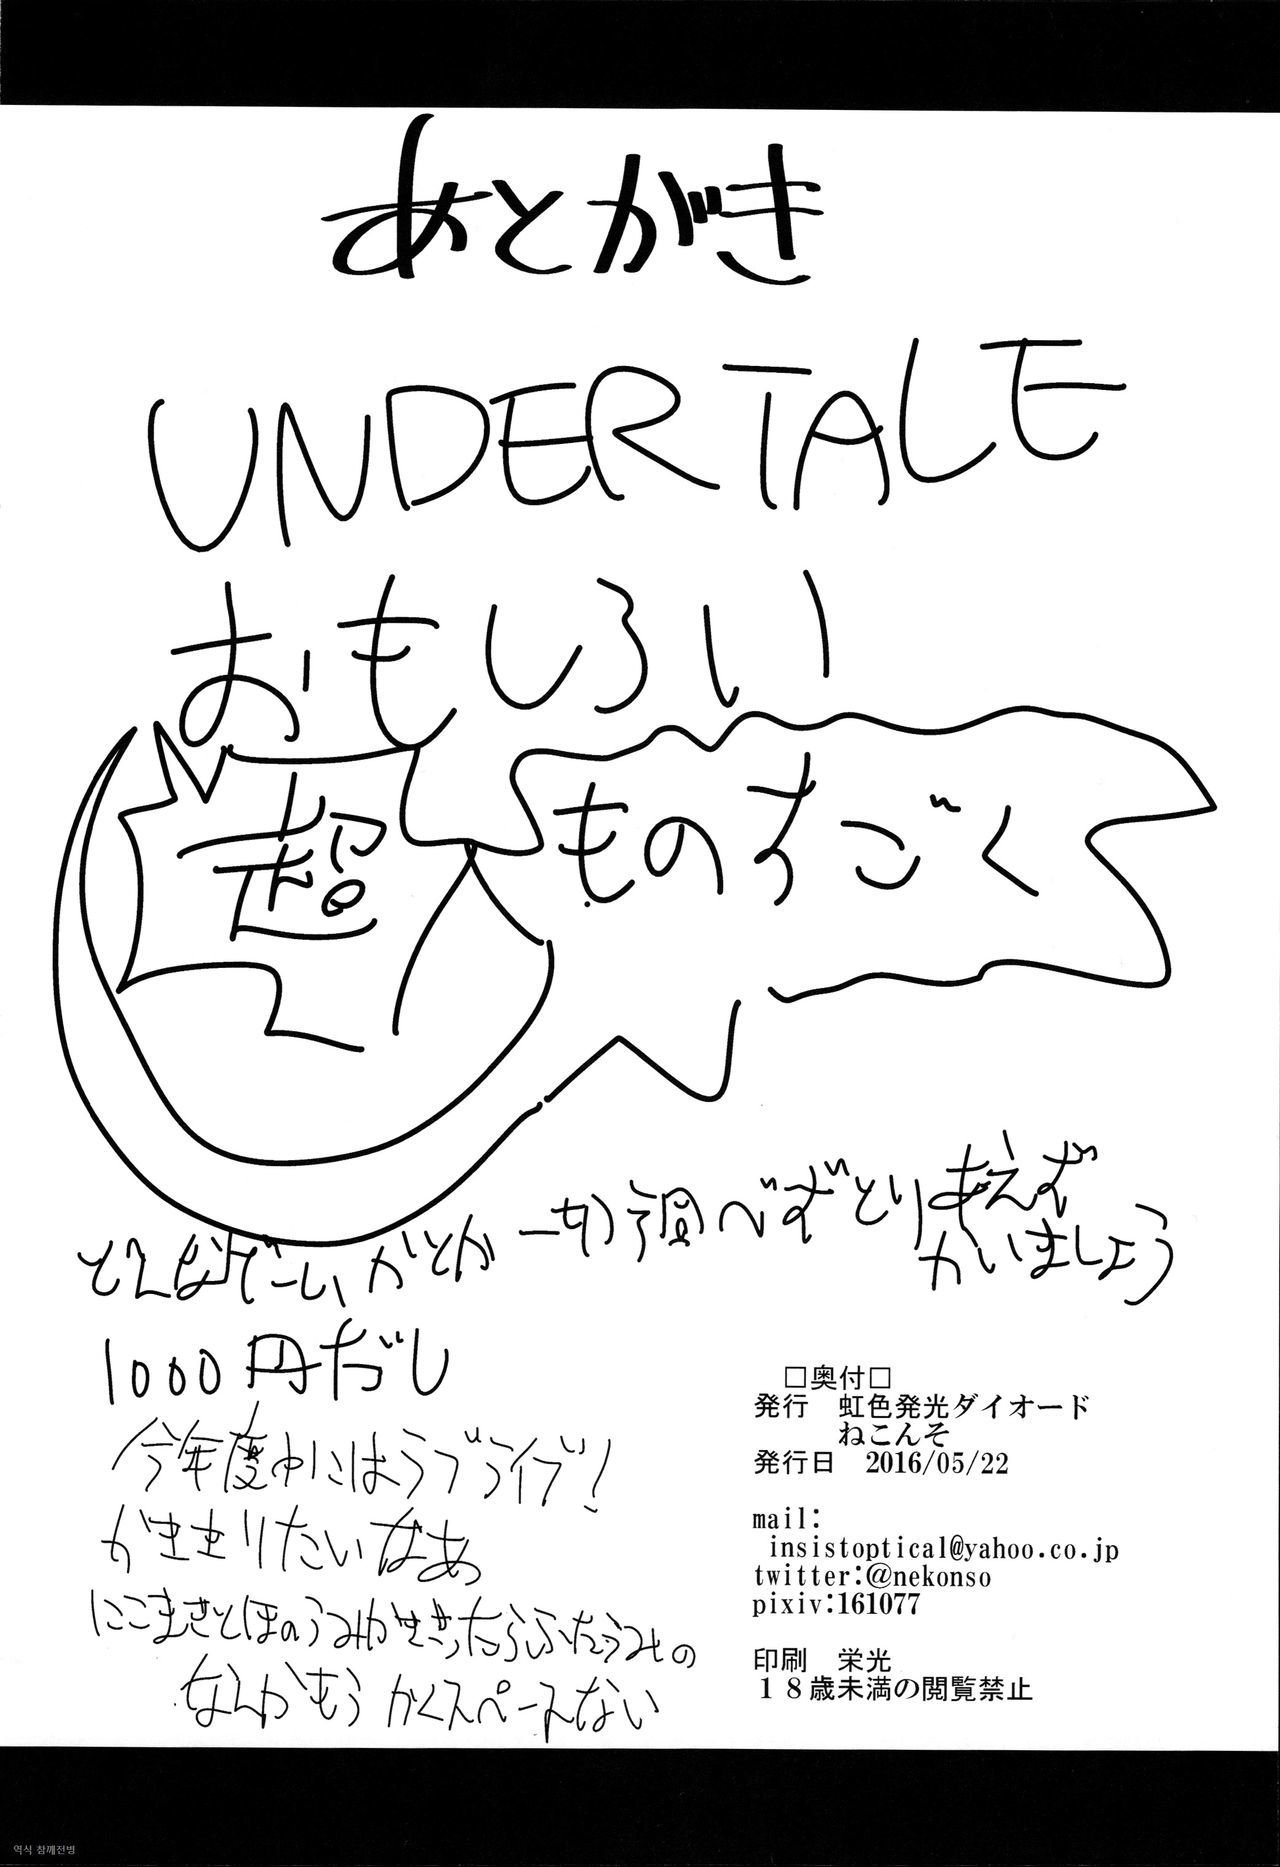 あとがき
UNDERTALE
おもしろい
超 ものすごく
どんなゲームかとか一切調べずとりあえず
かいましょう
1000円だし
今年度中にはラブライブ!
がききりたいなあ
にこまきとほのうみかききったらふたなりうみの
なんかもうかくスペースない
□奥付□
発行 虹色発光ダイオード
ねこんそ
発行日 2016/05/22
mail:
insistoptical@yahoo.co.jp
twitter:@nekonso
pixiv:161077
印刷 栄光
18歳未満の閲覧禁止
역식 참깨전병